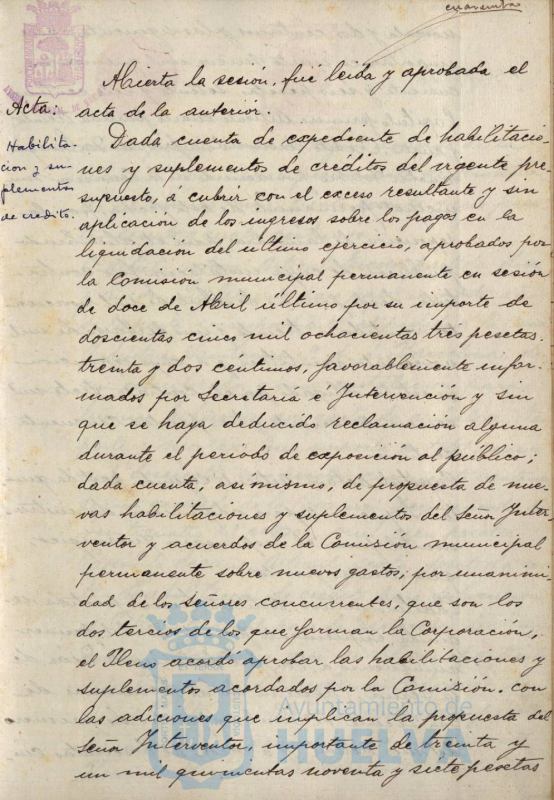 cuarenta
Abierta la sesión, fué leida y aprobada el
Acta: acta de la anterior.
Habilita-
cion y su-
plementos
de credito.
Dada cuenta de expediente de habilitacio-
nes y suplementos de créditos del vigente pre-
supuesto, á cubrir con el exceso resultante y sin
aplicación de los ingresos sobre los pagos en la
liquidación del último ejercicio, aprobados por
la Comisión municipal permanente en sesión
de doce de Abril último por su importe de
doscientas cinco mil ochocientas tres pesetas
treinta y dos céntimos, favorablemente infor-
mados por Secretaría é Intervención y sin
que se haya deducido reclamación alguna
durante el periodo de exposición al público;
dada cuenta, asimismo, de propuesta de nue-
vas habilitaciones y suplementos del Señor Inter-
ventor y acuerdos de la Comisión municipal
permanente sobre nuevos gastos; por unanimi-
dad de los señores concurrentes, que son los
dos tercios de los que forman la Corporación,
el Pleno acordó aprobar las habilitaciones y
suplementos acordados por la Comisión. con
las adiciones que implican la propuesta del
Señor Interventor, importante de treinta y
un mil quinientas noventa y siete pesetas
Ayuntamiento de
HUELVA